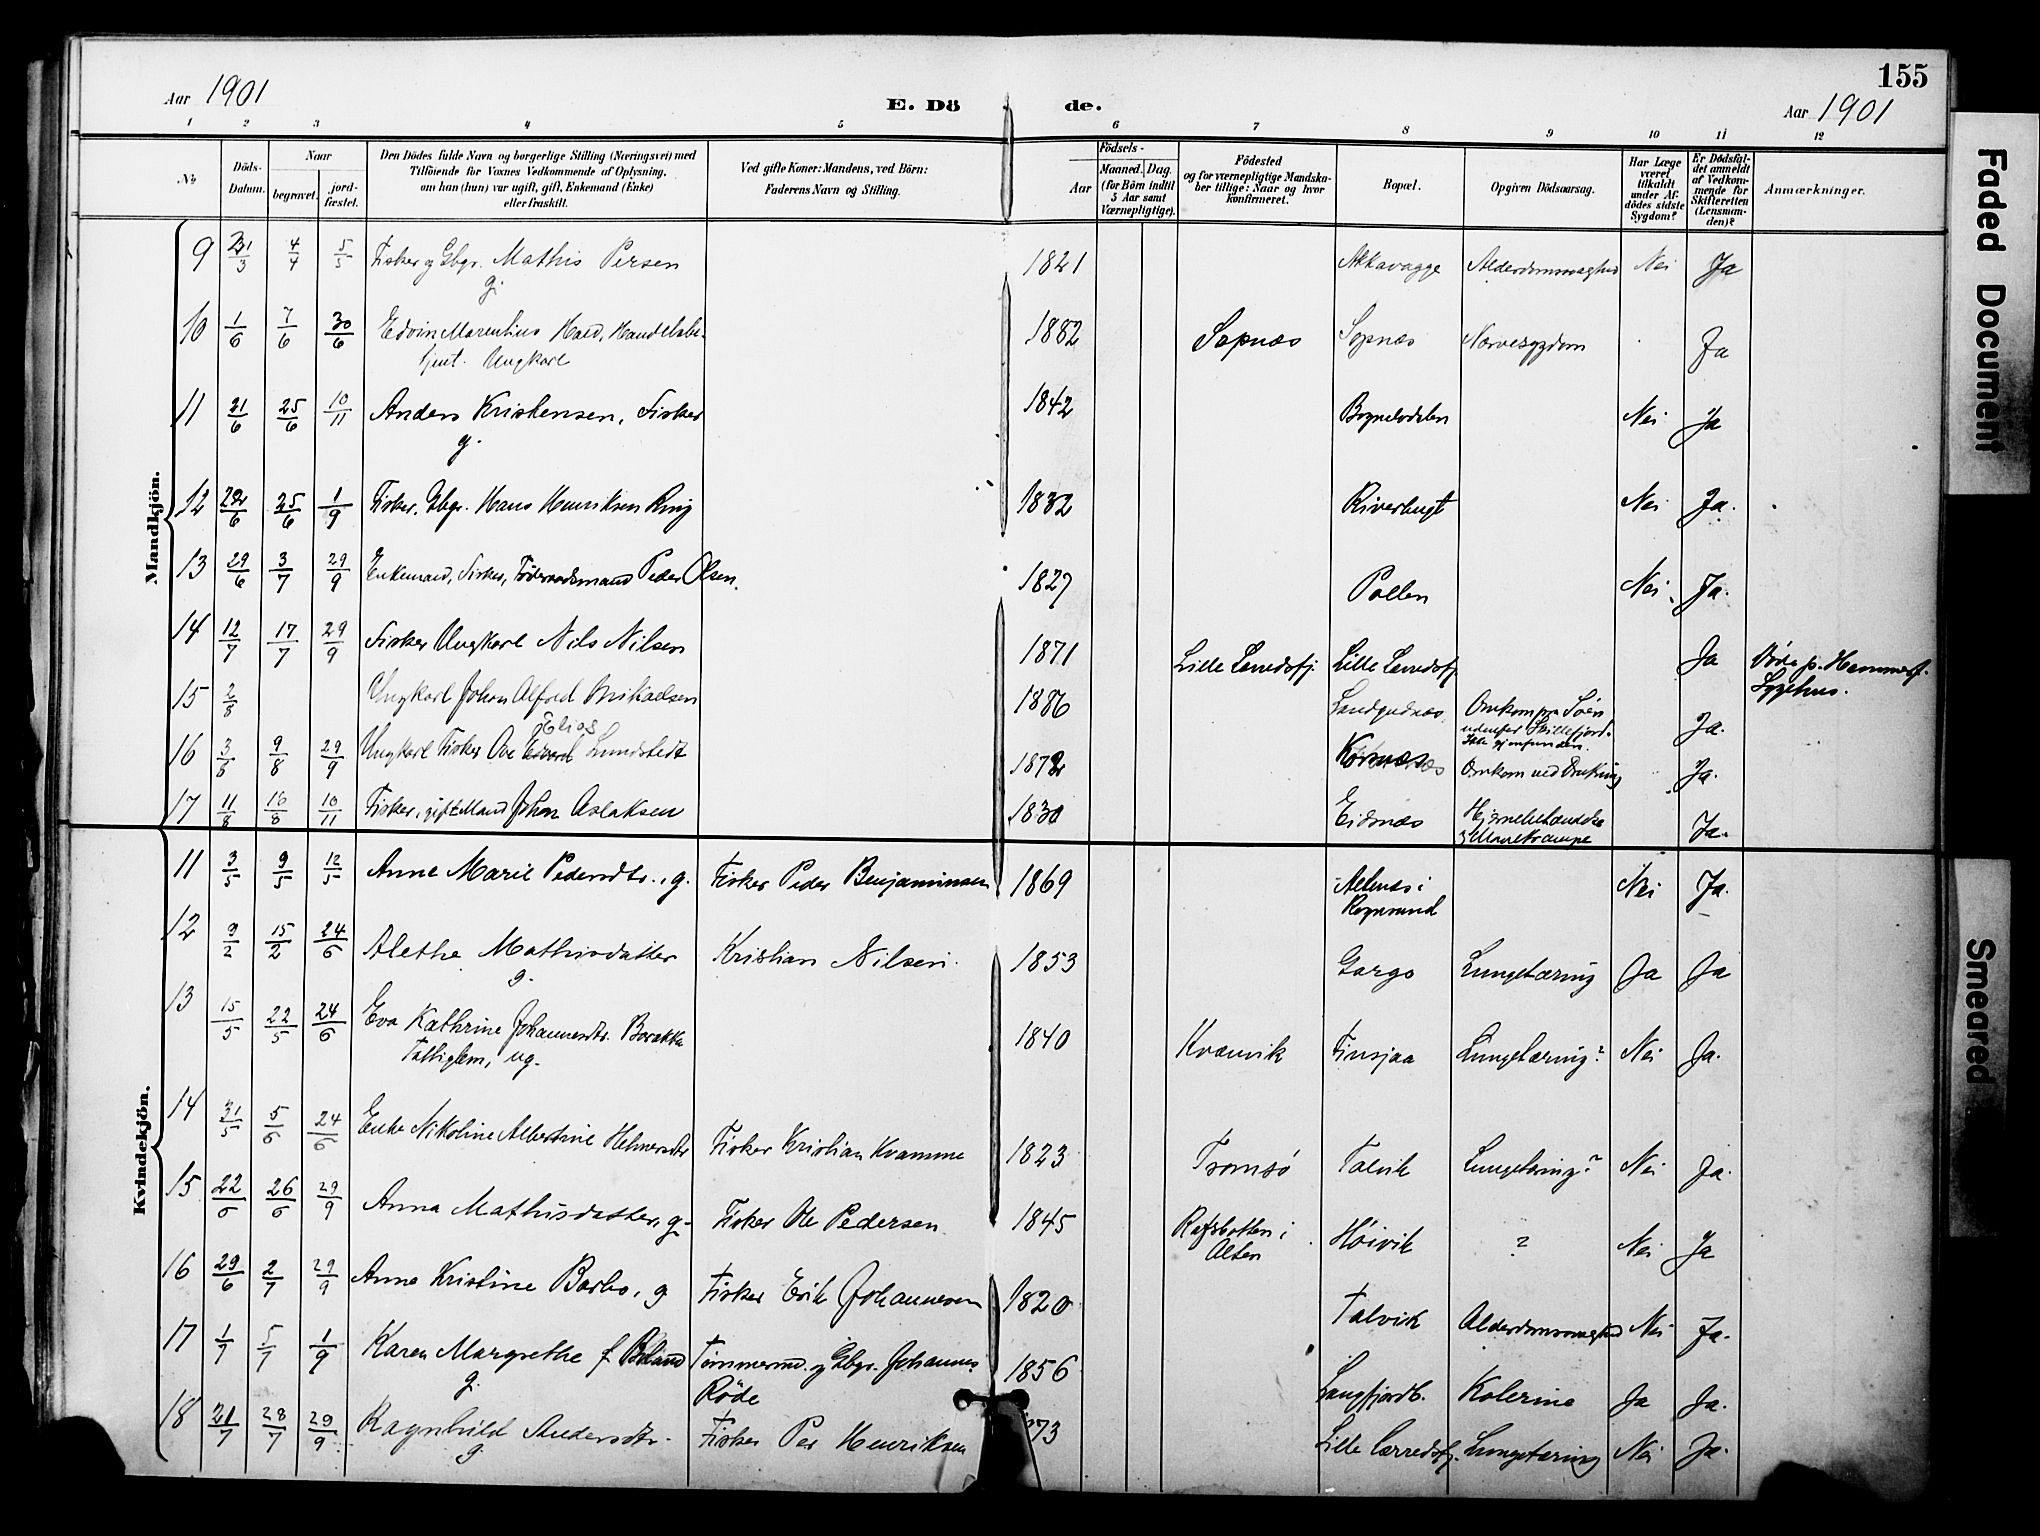 155
Aar 1901
E. Dö de.
Aar 1901
1 2 3 4 5 6 7 8 9 10 11 12
№
Döds-Datum.
Naar
begravet.
jord-fæstet.
Den Dödes fulde Navn og borgerlige Stilling (Næringsvei) med
Tilföiende for Voxnes Vedkommende af Oplysning,
om han (hun) var ugift, gift, Enkemand (Enke)
eller fraskilt.
Ved gifte Koner: Mandens, ved Börn:
Faderens Navn og Stilling.
Födsels-
Aar
Maaned. Dag.
(for Börn indtil
5 Aar samt
Værnepligtige).
Födested
og for værnepligtige Mandska-
ber tillige: Naar og hvor
konfirmeret.
Bopæl.
Opgiven Dödsaarsag.
Har Læge
været
tilkaldt
under Af-
dödes sidste
Sygdom?
Er Dödsfal-
det anmeldt
af Vedkom-
mende for
Skifteretten
(Lensman-
den)?
Anmærkninger.
Mandkjön.
9 31/3 4/4 5/5 Fisker og Gbgr. Mathis Persen g. 1821 Akkavagge Alderdomssvaghed Nei Ja
10 1/6 7/6 30/6 Edvin Marentius Hald, Handelsbe-
tjent. Ungkarl 1882 Sopnæs Sopnæs Nervesygdom Ja
11 21/6 25/6 10/11 Anders Kristensen, Fisker g. 1842 Bognelvdalen Nei Ja
12 22/6 25/6 1/9 Fisker, Gbgr. Hans Henriksen Ring 1832 Riverbugt Nei Ja.
13 29/6 3/7 29/9 Enkemand, Fisker, Föderaadsmand Peder Olsen. 1827 Pollen Nei Ja.
14 12/7 17/7 29/9 Fisker Ungkarl Nils Nilsen 1871 Lille Lerredsfj. Lille Lerredsfj. Ja Döde p. Hammerf.
Sygehus.
15 2/8 Ungkarl Johan Alfred Mikaelsen 1886 Omkom paa Söen
udenfor Skillefjord.
Ikke gjenfunden. Ja.
16 9/8 29/9 Ungkarl Fisker Ove Elias Lundstedt 1872 Omkom ved Drukning Ja.
17 11/8 16/8 10/11 Fisker, gift Mand Johan Aslaksen 1830 Eidsnæs Hjernebetændelse
& Mavekrampe Ja.
Kvindekjön.
11 3/5 9/5 12/5 Anne Marie Pedersdtr., g. Fisker Peder Benjaminsen 1869 Nei Ja.
12 9/2 15/2 24/6 Alethe Mathisdatter g. Kristian Nilsen. 1853 Gargo Lungetæring Ja Ja
13 15/5 22/5 24/6 Eva Kathrine Johannesdtr. Barakka
Fattiglem, ug. 1840 Kvænvik Tinsjaa Lungetæring? Nei Ja.
14 31/5 5/6 24/6 Enke Nikoline Albertine Helmersdtr Fisker Kristian Kvamme 1823 Tromsö Talvik Lungetæring? Nei Ja.
15 22/6 26/6 29/9 Anna Mathisdatter, g. Fisker Ole Pedersen 1845 Rafsbotten i
Alten Höivik ? Nei Ja
16 29/6 2/7 29/9 Anne Kristine Barbo, g Fisker Erik Johannesen 1820 Talvik Alderdomssvaghed Nei Ja.
17 1/7 5/7 1/9 Karen Margrethe f. g. Tömmermd. og Gbgr. Johannes
Röde 1856 Langfjordb. Kolerine Ja Ja.
18 21/7 28/7 29/9 Ragnhild Andersdtr. g. Fisker Per Henriksen 73 Lille Lerredsfj. Lungetæring Nei Ja.
Faded Document
Smeared